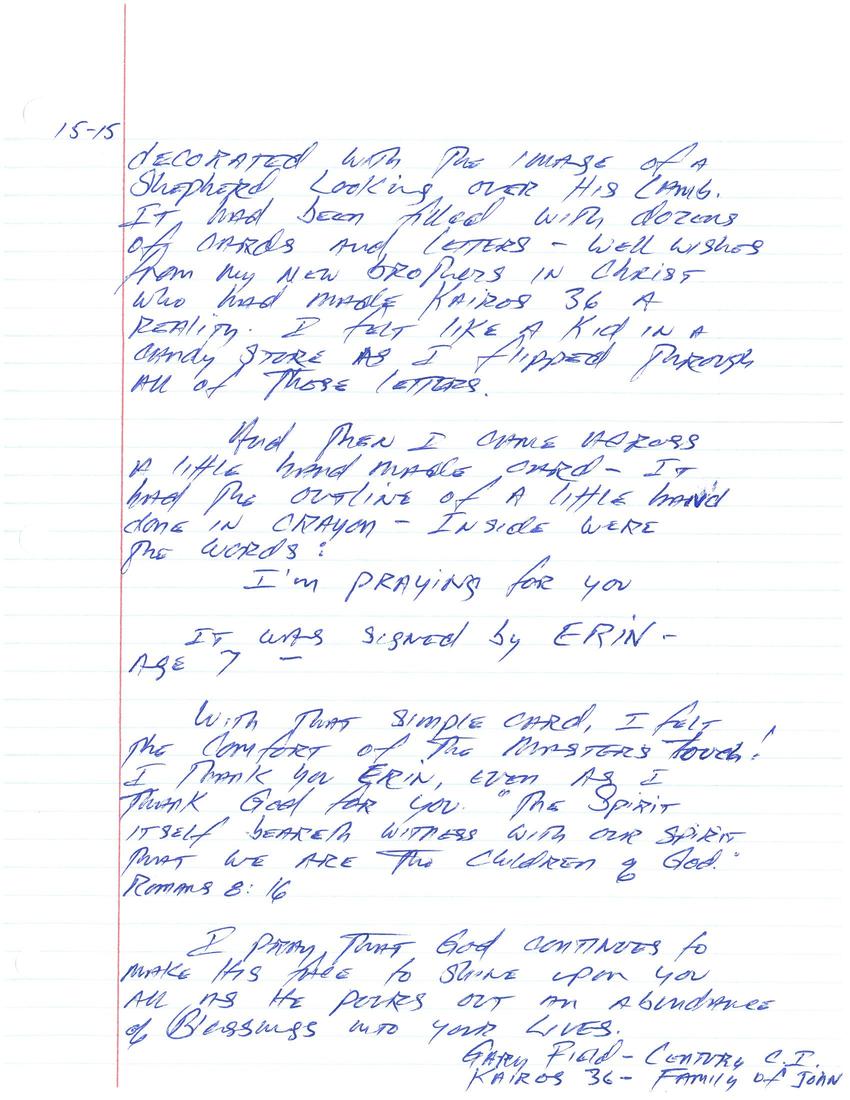 15-15
decorated with the image of a
Shepherd looking over His lamb.
It had been filled with dozens
of cards and letters - well wishes
from my new brothers in Christ
who had made Kairos 36 a
reality. I felt like a kid in a
candy store as I flipped through
all of those letters.
And then I came across
a little hand made card - It
had the outline of a little hand
done in crayon - Inside were
the words:
I'm praying for you
It was signed by ERIN -
Age 7 -
With that simple card, I felt
the comfort of the Masters touch!
I thank you Erin, even as I
thank God for you. "The Spirit
itself beareth witness with our spirit
that we are the children of God."
Romans 8:16
I pray that God continues to
make His face to shine upon you
all as He pours out an abundance
of Blessings into your lives.
Gary Field - Century C.I.
Kairos 36 - Family of John